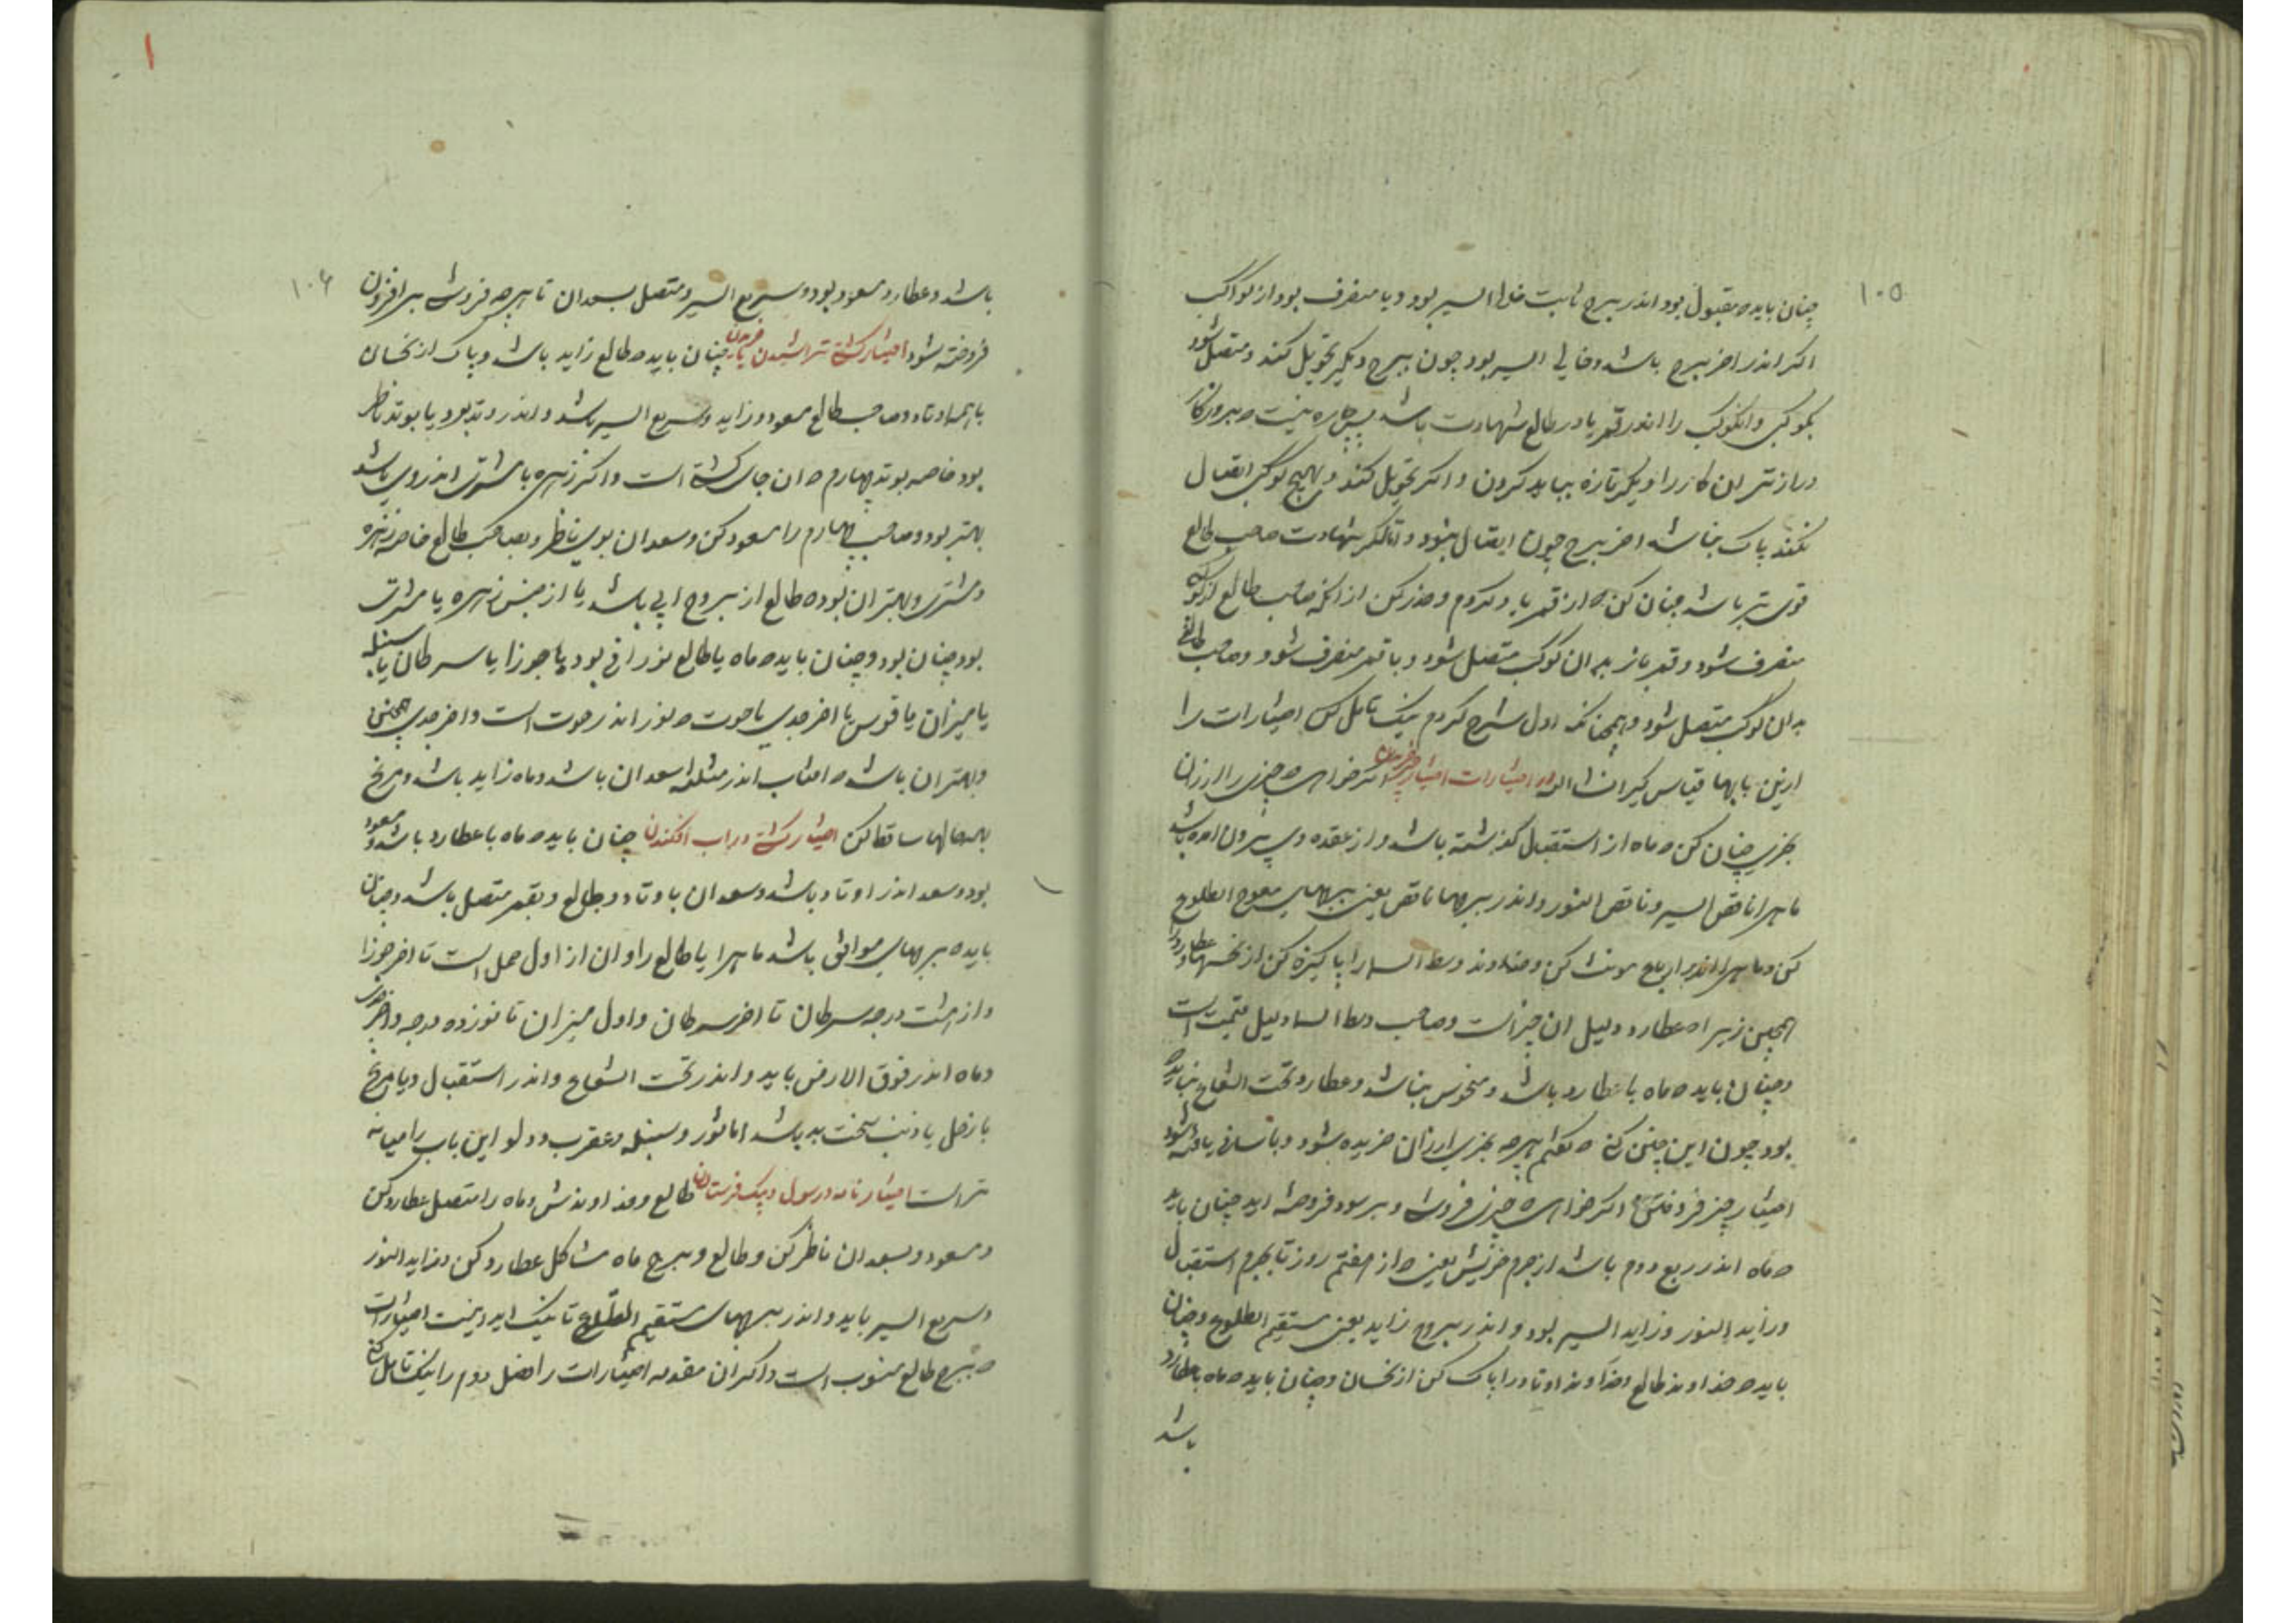 ۱۰۵
چنان باید که مقبول بود اندر برج ثابت خالی السیر بود و یا منصرف بود از کواکب
اکر اندر اخر برج باشد و خالی السیر بود چون ببرج دیکر تحویل کند و متصل شود
بکوکبی و آنکوکب را اندر قمر یا در طالع شهادت باشد پس چاره نیست که بروزکار
درازتر ان کار را دیکر تازه بباید کردن و اکر تحویل کند و بهیچ کوکب اتصال
نکند پاک بباشد اخر برج چون اتصال نبود و آنکه شهادت صاحب طالع
قوی تر باشد چنان کن که از قمر یاد کردم و حذر کن از آنکه صاحب طالع از کوکبی
منصرف شود و قمر باز به ان کوکب متصل شود و یا قمر منصرف شود و صاحب طالع
بدان کوکب متصل شود و همچنانکه اول شرح کردم نیک تامل کن اختیارات را
ازین بابها قیاس کیر ان شا الله اختیارات اختیار چیز خریدن اکر خواهی که چیزی را ارزان
بخری چنان کن که ماه از استقبال کذشته باشد و از عقده وی بیرون امده باشد
ماه را ناقص السیر و ناقص النور و اندر برجهاء ناقص یعنی برجهای معوج الطلوع
کن و ماه را اندر ارباع مونث کن و خداوند وسط السما را پاکیزه کن از نحسها و عطارد را
همچنین زیرا که عطارد دلیل ان چیز است و صاحب وسط السما دلیل قیمت است
و چنان باید که ماه با عطارد باشد و منحوس نباشد و عطارد تحت الشعاع نباید که
بود چون این چنین کنی که کفتم هر چه بخری ارزان خریده شود و باسانی یافته شود
اختیار چیز فروختن اکر خواهی که چیزی فروشی و بر سود فروخته اید چنان باید
که ماه اندر ربع دوم باشد از جرم خویش یعنی که از هفتم روز تا بجرم استقبال
و زاید النور و زاید السیر بود و اندر بروج زاید یعنی مستقیم الطلوع و چنان
باید که خداوند طالع و خداوند اوتاد را پاک کن از نحسان و چنان باید که ماه با عطارد
باشد
۱۰۶
باشد و عطارد مسعود بود و سریع السیر و متصل بسعدان تا هر چه فروشی بر افزون
فروخته شود اختیار کشتی تراشیدن چنان باید که طالع زاید باشد و پاک از نحسان
با همه اوتاد و صاحب طالع مسعود و زاید و سریع السیر باشد و اندر وتد بود یا بوتد ناظر
بود خاصه بوتد چهارم که ان جای کشتی است و اکر زهره یا مشتری اندر وی باشد
بهتر بود و صاحب چهارم را مسعود کن و سعدان بوی ناظر و بصاحب طالع خاصه زهره
و مشتری و بهتر ان بود که طالع از بروج ابی باشد یا از جنس زهره یا مشتری
بود چنان بود و چنان باید که ماه یا طالع نور افی بود یا جوزا یا سرطان یا سنبله
یا میزان یا قوس یا اخر جدی یا حوت که نور اندر حوت است و اخر جدی همچنین
و بهتر ان باشد که افتاب اندر مثلثه سعدان باشد و ماه زاید باشد و مریخ
بهمه حالها ساقط کن اختیار کشتی در اب افکندن چنان باید که ماه با عطارد باشد و مسعود
بود و سعد اندر اوتاد باشد و سعدان باوتاد و طالع و بقمر متصل باشد و چنان
باید که برجهای موافق باشد ماه را یا طالع را و ان از اول حمل است تا اخر جوزا
و از هشت درجه سرطان تا اخر سرطان و اول میزان تا نوزده درجه و اخر جدی
و ماه اندر فوق الارض باید و اندر تحت الشعاع و اندر استقبال و یا مریخ
یا زحل یا ذنب سخت بد باشد اما ثور و سنبله و عقرب و دلو این باب را میانه
تر است اختیار نامه و رسول و پیک فرستادن طالع و خداوندش و ماه را متصل عطارد کن
و مسعود و بسعدان ناظر کن و طالع و برج ماه مشاکل عطارد کن و زاید النور
و سریع السیر باید و اندر برجهای مستقیم الطلوع تا نیک اید و نیست اختیارات
که ببرج طالع منسوب است و اکر ان مقدمه اختیارات را فصل دوم را نیک تامل کنی